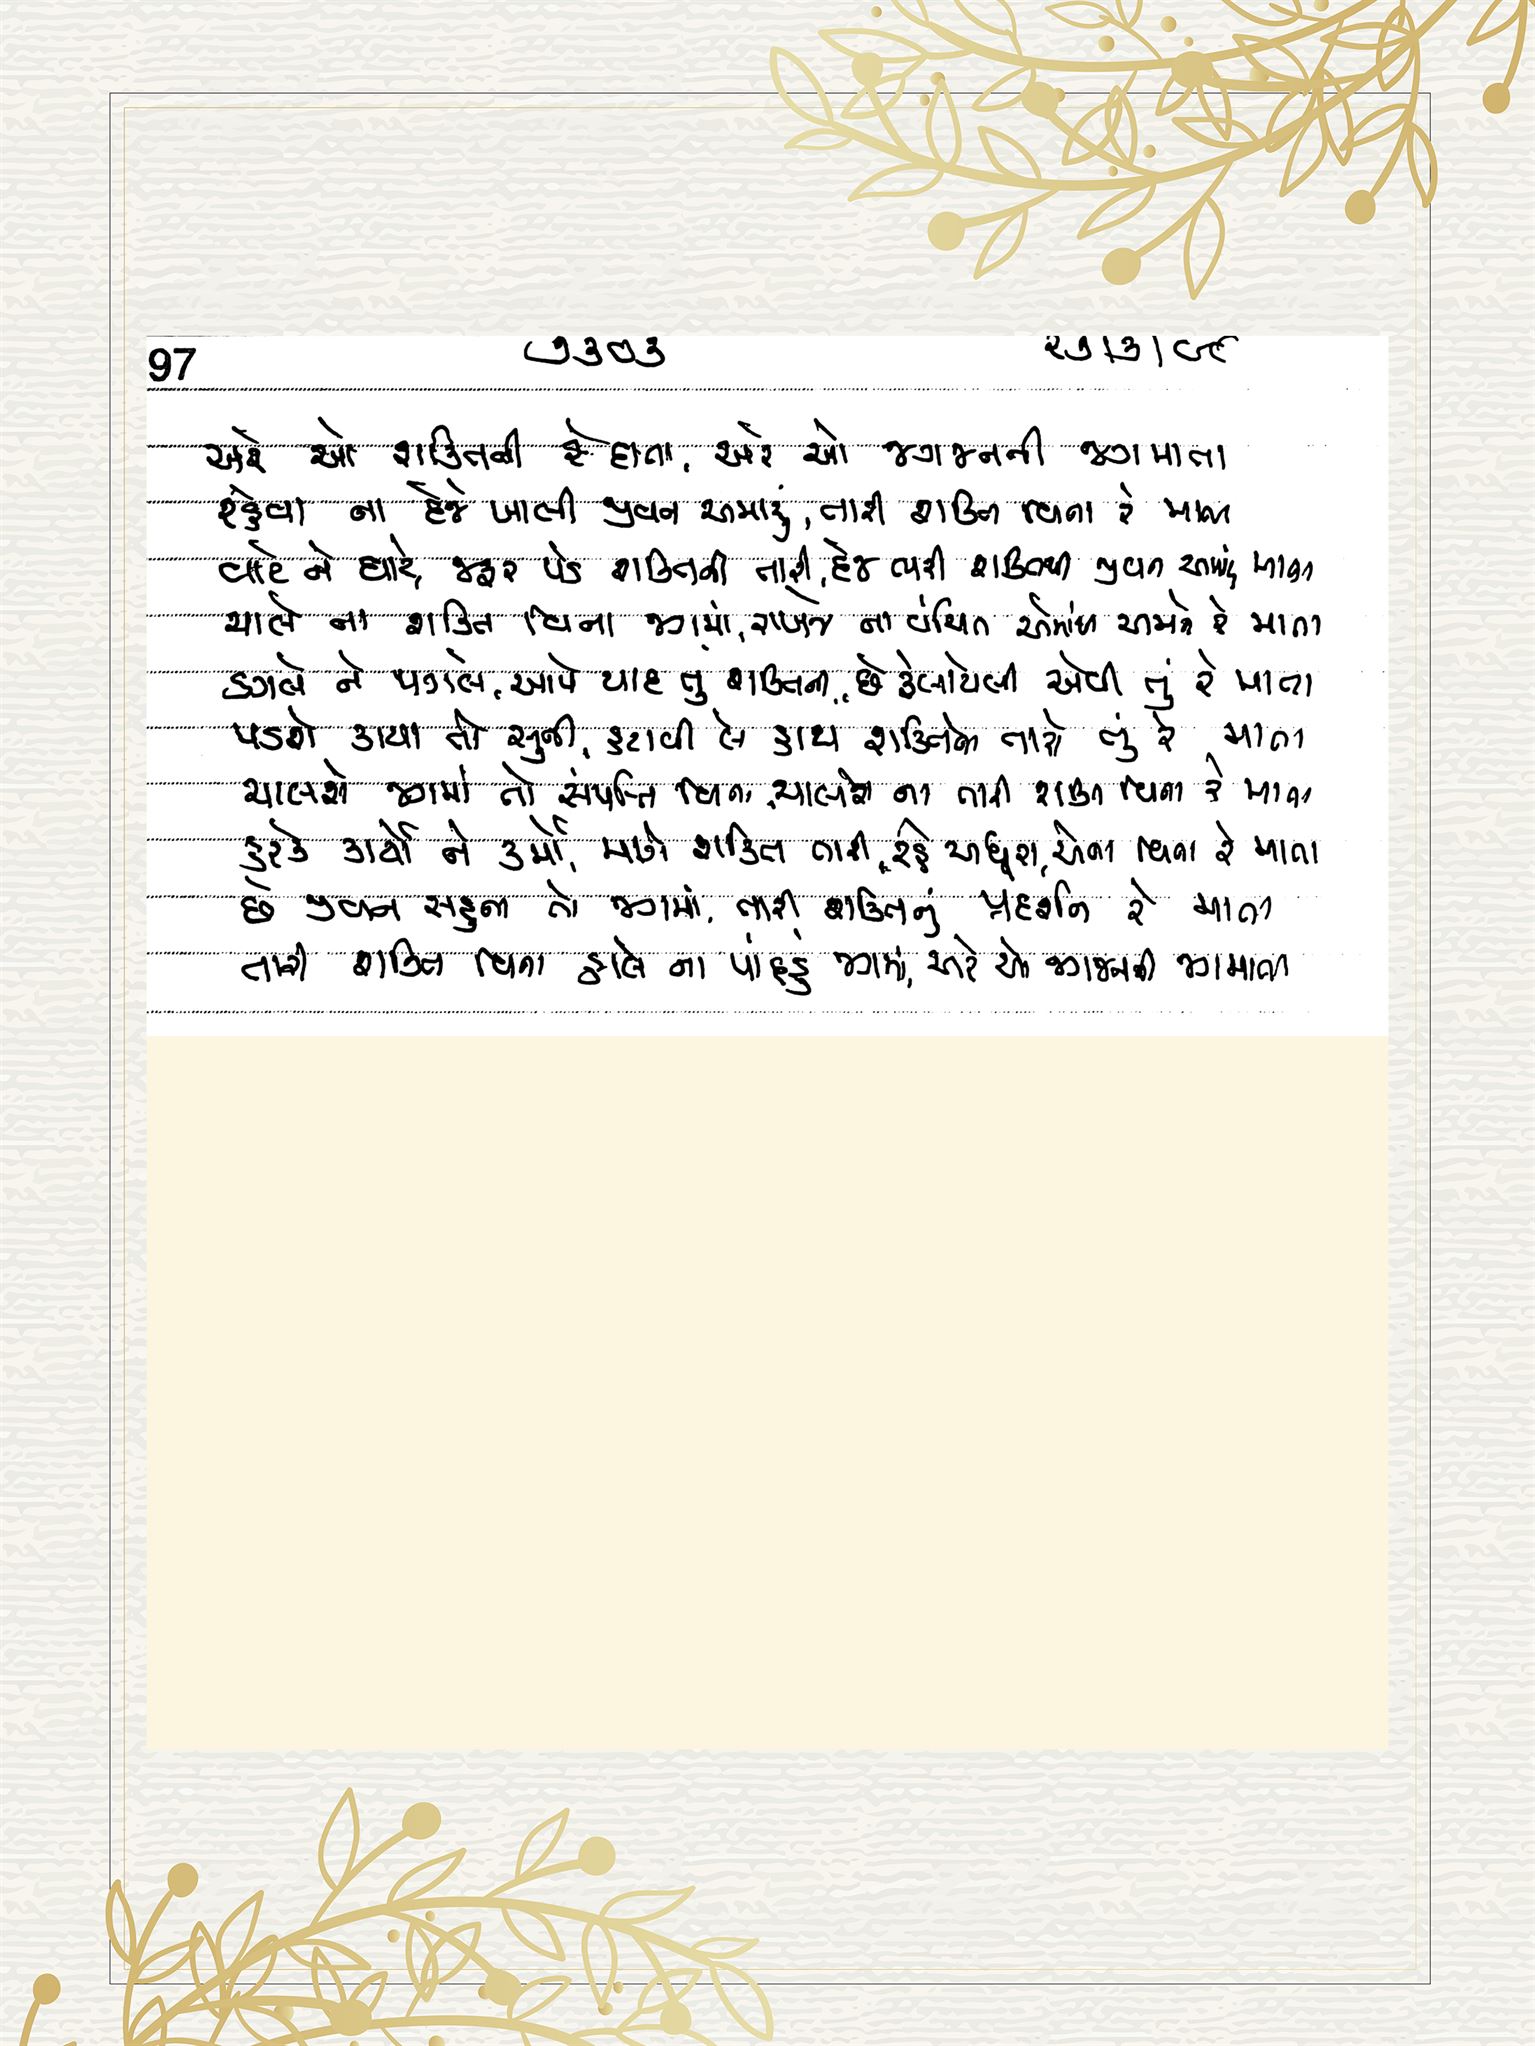 97
૭૩૦૩
૨૭/૩/૯૮
અરે ઓ શક્તિની રે દાતા, અરે ઓ જગજનની જગમાતા
રહેવા ના દેજે ખાલી જીવન અમારું, તારી શક્તિ વિના રે માતા
વારે ને ઘારે, જરૂર પડે શક્તિની તારી, દેજે ભરી શક્તિથી જીવન અમારું માતા
ચાલે ના શક્તિ વિના જગમાં, રાખજે ના વંચિત એમાંથી અમને રે માતા
ડગલે ને પગલે, આપે યાદ તું શક્તિની, છે ફેલાયેલી એવી તું રે માતા
પડશે કાયા તો સુની, હટાવી લે હાથ શક્તિનો તારો તું રે માતા
ચાલશે જગમાં તો સંપત્તિ વિના, ચાલશે ના તારી શક્તિ વિના રે માતા
હરેક કાર્યો ને કર્મો, માગે શક્તિ તારી, રહે અધૂરા, એના વિના રે માતા
છે જીવન સહુના તો જગમાં, તારી શક્તિનું પ્રદર્શન રે માતા
તારી શક્તિ વિના હાલે ના પાંદડું જગમાં, અરે ઓ જગજનની જગમાતા